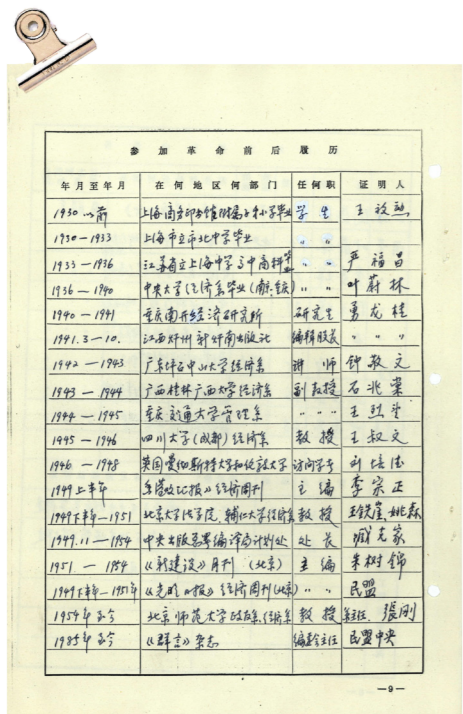 参加革命前后履历
年月至年月 在何地区何部门 任何职 证明人
1930以前 上海商务印书馆附属尚公小学毕业 学生 王
1930—1933 上海市立市北中学毕业 〃 〃
1933—1936 江苏省立上海中学高中商科毕业 〃 〃 严福昌
1936—1940 中央大学经济系毕业(南京、重庆) 〃 〃 叶蔚林
1940—1941 重庆南开经济研究所 研究生 勇龙桂
1941.3—10. 江西 出版社 编辑 〃 〃 〃
1942—1943 广东坪石中山大学经济系 讲师 钟敬文
1943—1944 广西桂林广西大学经济系 副教授 石兆棠
1944—1945 重庆交通大学管理系 〃 〃 〃 王
1945—1946 四川大学(成都)经济系 教授 王叔文
1946—1948 英国曼彻斯特大学和伦敦大学 访问学者 刘培
1949上半年 经济周刊 主编 李宗正
1949下半年—1951 北京大学法学院、辅仁大学经济系 教授 王铁崖、姚
1949.11—1954 中央出版总署编译局计划处 处长 臧克家
1951—1954 《新建设》月刊 (北京) 主编 朱树
1949下半年—1951年 《光明日报》经济周刊(北京) 〃 〃 民盟
1954年至今 北京师范大学政教系、经济系 教授 系主任 張刚
1985年至今 《群言》杂志 编 主任 民盟中央
—9—